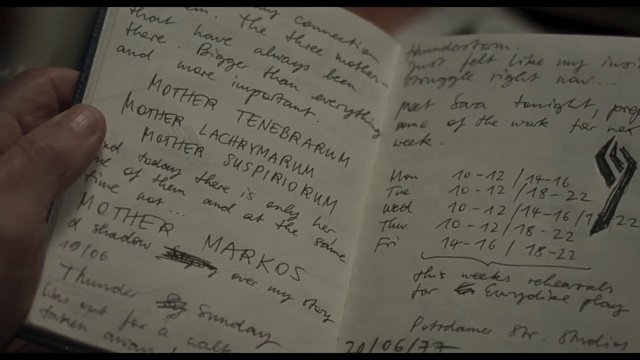 my connection
them. The three mother-
that have always been
there. Bigger than everything
and more important.
MOTHER TENEBRARUM
MOTHER LACHRYMARUM
MOTHER SUSPIRIORUM
And today there is only her
one of them and at the same
time not...
MOTHER MARKOS
a shadow over my story
19/06
Thunder Sunday
Was out for a walk
taken away
thunderstorm.
Just felt like my
struggle right now...
meet Sara tonight,
some of the work for next
week.
Mon 10-12 / 14-16
Tue 10-12 / 18-22
Wed 10-12 / 14-16 / 18-22
Thur 10-12 / 18-22
Fri 14-16 / 18-22
this weeks rehearsals
for Eurydike play
Potsdamer Str. Studios
20/06/77